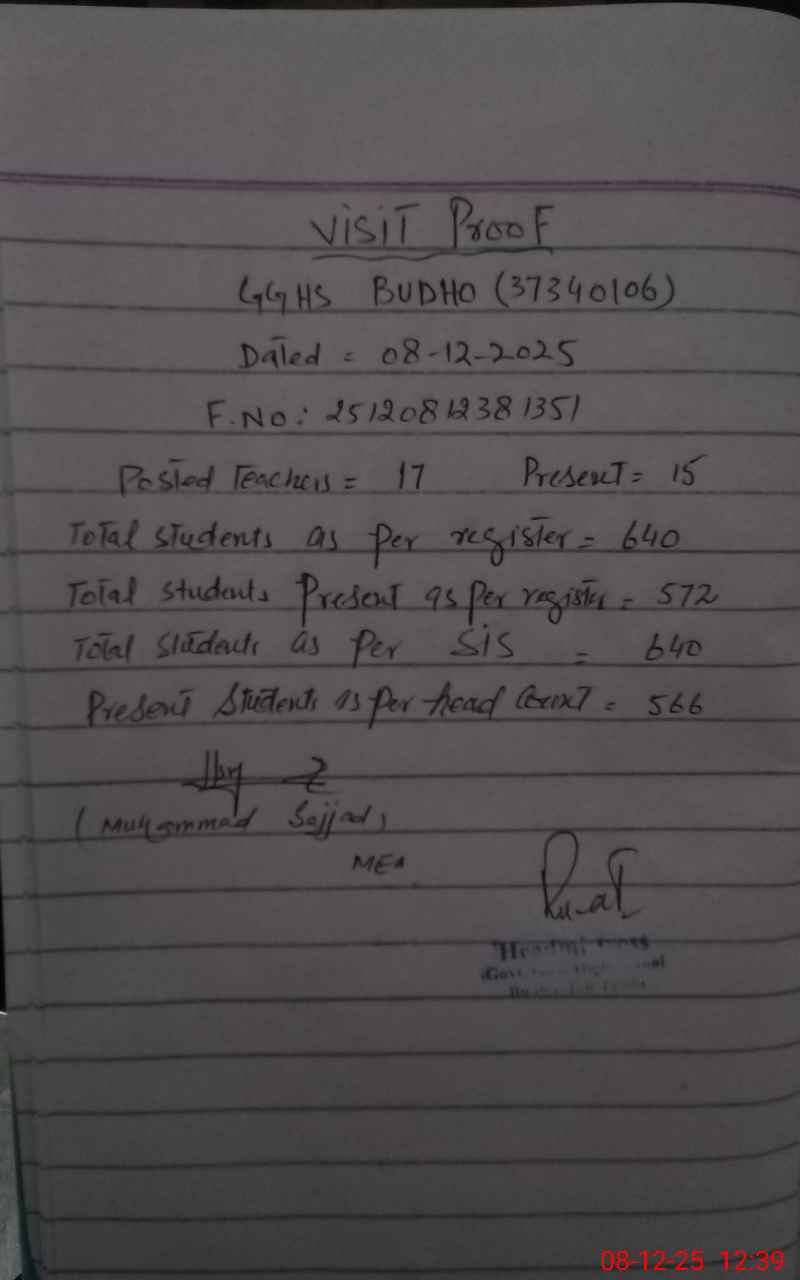 VISIT PROOF
GGHS BUDHO (37340106)
Dated = 08-12-2025
F.NO: 25120812381351
Posted Teachers = 17 Present = 15
Total students as per register = 640
Total students Present as per register = 572
Total students as per SIS = 640
Present Students as per head count = 566
(Muhammad Sajjad)
MEA
Headmistress
08-12-25 12:39